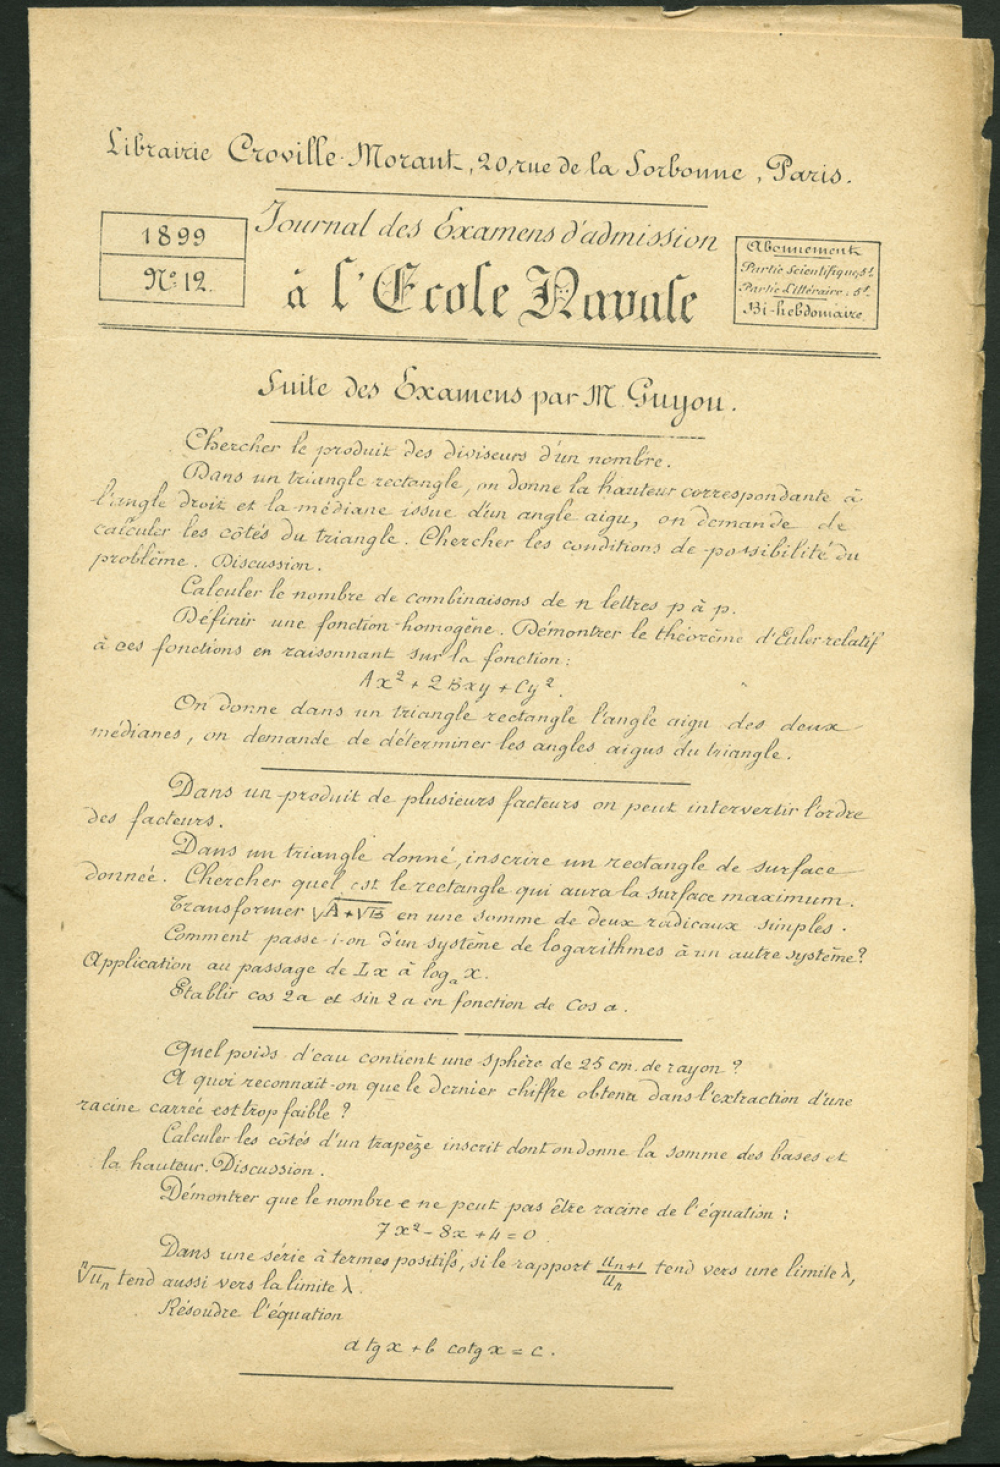 Librairie Croville-Morant, 20, rue de la Sorbonne, Paris.
1899
Nº 12.
Journal des Examens d'admission
à l'Ecole Navale
Abonnement
Partie Scientifique, 5f.
Partie Littéraire : 5f.
Bi-hebdomaire.
Suite des Examens par M. Guyou.
Chercher le produit des diviseurs d'un nombre.
Dans un triangle rectangle, on donne la hauteur correspondante à
l'angle droit et la médiane issue d'un angle aigu, on demande de
calculer les côtés du triangle. Chercher les conditions de possibilité du
problème. Discussion.
Calculer le nombre de combinaisons de n lettres p à p.
Définir une fonction homogène. Démontrer le théorème d'Euler relatif
à ces fonctions en raisonnant sur la fonction :
Ax² + 2Bxy + Cy².
On donne dans un triangle rectangle l'angle aigu des deux
médianes, on demande de déterminer les angles aigus du triangle.
Dans un produit de plusieurs facteurs on peut intervertir l'ordre
des facteurs.
Dans un triangle donné, inscrire un rectangle de surface
donnée. Chercher quel est le rectangle qui aura la surface maximum.
Transformer √(A+√B) en une somme de deux radicaux simples.
Comment passe-t-on d'un système de logarithmes à un autre système ?
Application au passage de Lx à logₐ x.
Établir cos 2a et sin 2a en fonction de cos a.
Quel poids d'eau contient une sphère de 25 cm. de rayon ?
A quoi reconnaît-on que le dernier chiffre obtenu dans l'extraction d'une
racine carrée est trop faible ?
Calculer les côtés d'un trapèze inscrit dont on donne la somme des bases et
la hauteur. Discussion.
Démontrer que le nombre e ne peut pas être racine de l'équation :
7x² - 8x + 4 = 0.
Dans une série à termes positifs, si le rapport uₙ₊₁/uₙ tend vers une limite λ,
ⁿ√uₙ tend aussi vers la limite λ.
Résoudre l'équation
a tg x + b cotg x = c.